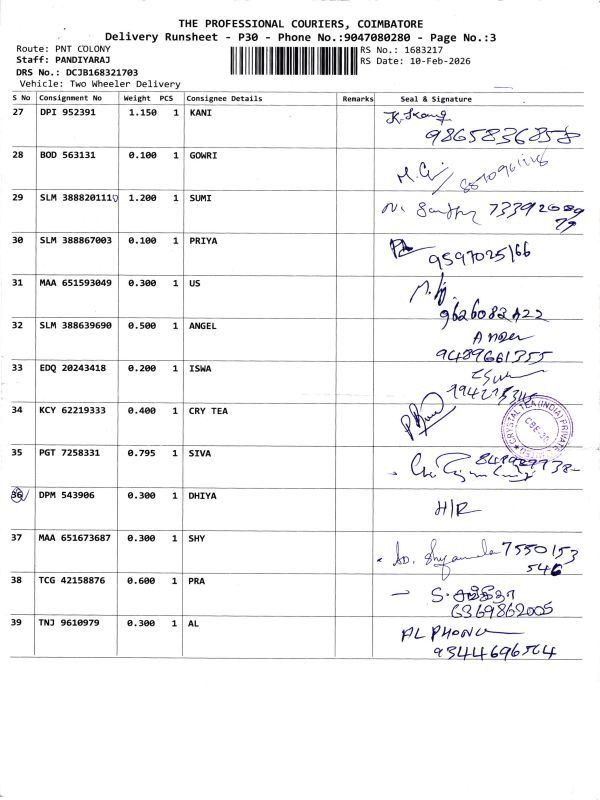 THE PROFESSIONAL COURIERS, COIMBATORE
Delivery Runsheet - P30 - Phone No.:9047080280 - Page No.:3
Route: PNT COLONY
Staff: PANDIYARAJ
DRS No.: DCJB168321703
Vehicle: Two Wheeler Delivery
RS No.: 1683217
RS Date: 10-Feb-2026
S No Consignment No Weight PCS Consignee Details Remarks Seal & Signature
27 DPI 952391 1.150 1 KANI
9865836858
28 BOD 563131 0.100 1 GOWRI
29 SLM 388820111 1.200 1 SUMI
30 SLM 388867003 0.100 1 PRIYA
9597025166
31 MAA 651593049 0.300 1 US
32 SLM 388639690 0.500 1 ANGEL
Angel
9489661355
33 EDQ 20243418 0.200 1 ISWA
34 KCY 62219333 0.400 1 CRY TEA
CRYSTAL TEA (INDIA) PRIVATE
35 PGT 7258331 0.795 1 SIVA
36 DPM 543906 0.300 1 DHIYA
H/R
37 MAA 651673687 0.300 1 SHY
Shyamala 7550153
546
38 TCG 42158876 0.600 1 PRA
6369862005
39 TNJ 9610979 0.300 1 AL
9344696564